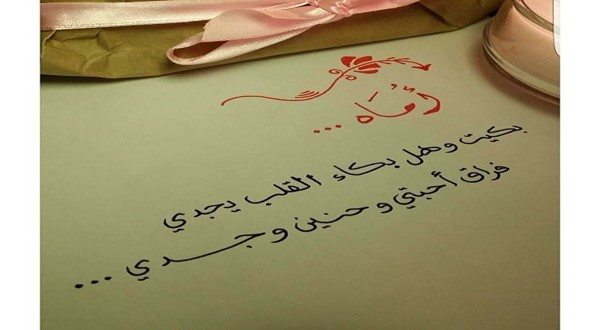 أمَاه ...
بكيت وهل بكاء القلب يجدي
فراق أحبتي وحنين وجدي ...